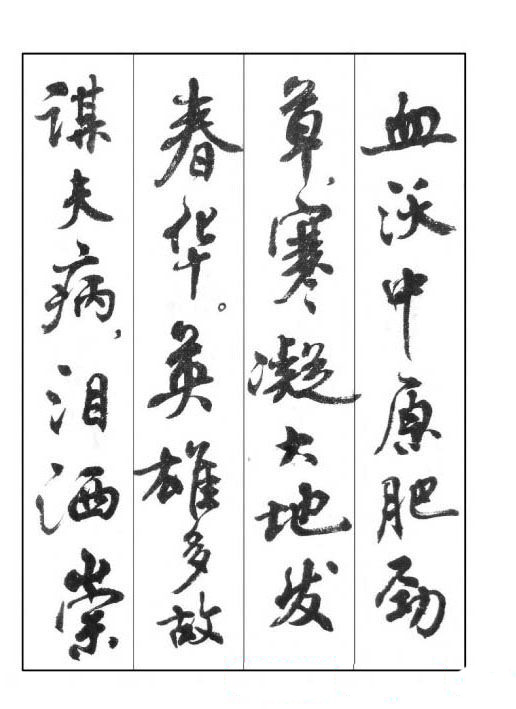 血沃中原肥劲
草，寒凝大地发
春华。英雄多故
谋夫病，泪洒崇